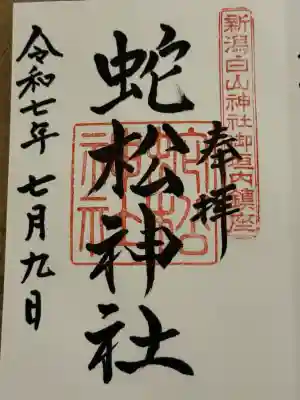 新潟白山神社御垣内鎮座
奉拝
蛇松神社
蛇松神社
令和七年七月九日